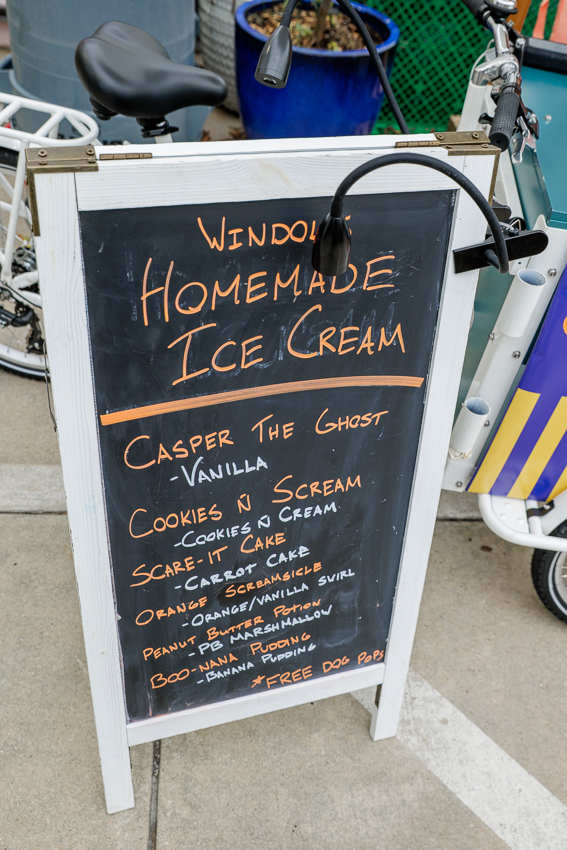 HOMEMADE
ICE CREAM
CASPER THE GHOST
-VANILLA
COOKIES Ñ SCREAM
-COOKIES Ñ CREAM
SCARE-IT CAKE
-CARROT CAKE
ORANGE SCREAMSICLE
-ORANGE/VANILLA SWIRL
PEANUT BUTTER POTION
-PB MARSHMALLOW
BOO-NANA PUDDING
-BANANA PUDDING
*FREE DOG POPS